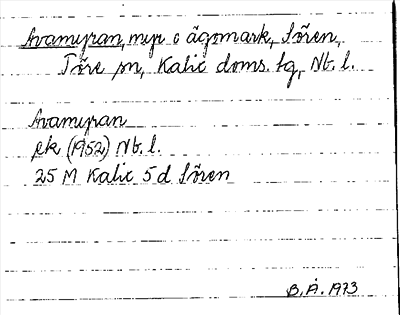 Avamyran, myr o ägomark, Sören,
Töre sn, Kalix doms. tg, Nb. l.
Avamyran
ek (1952) Nb. l.
25 M Kalix 5 d Sören
B.Å. 1973